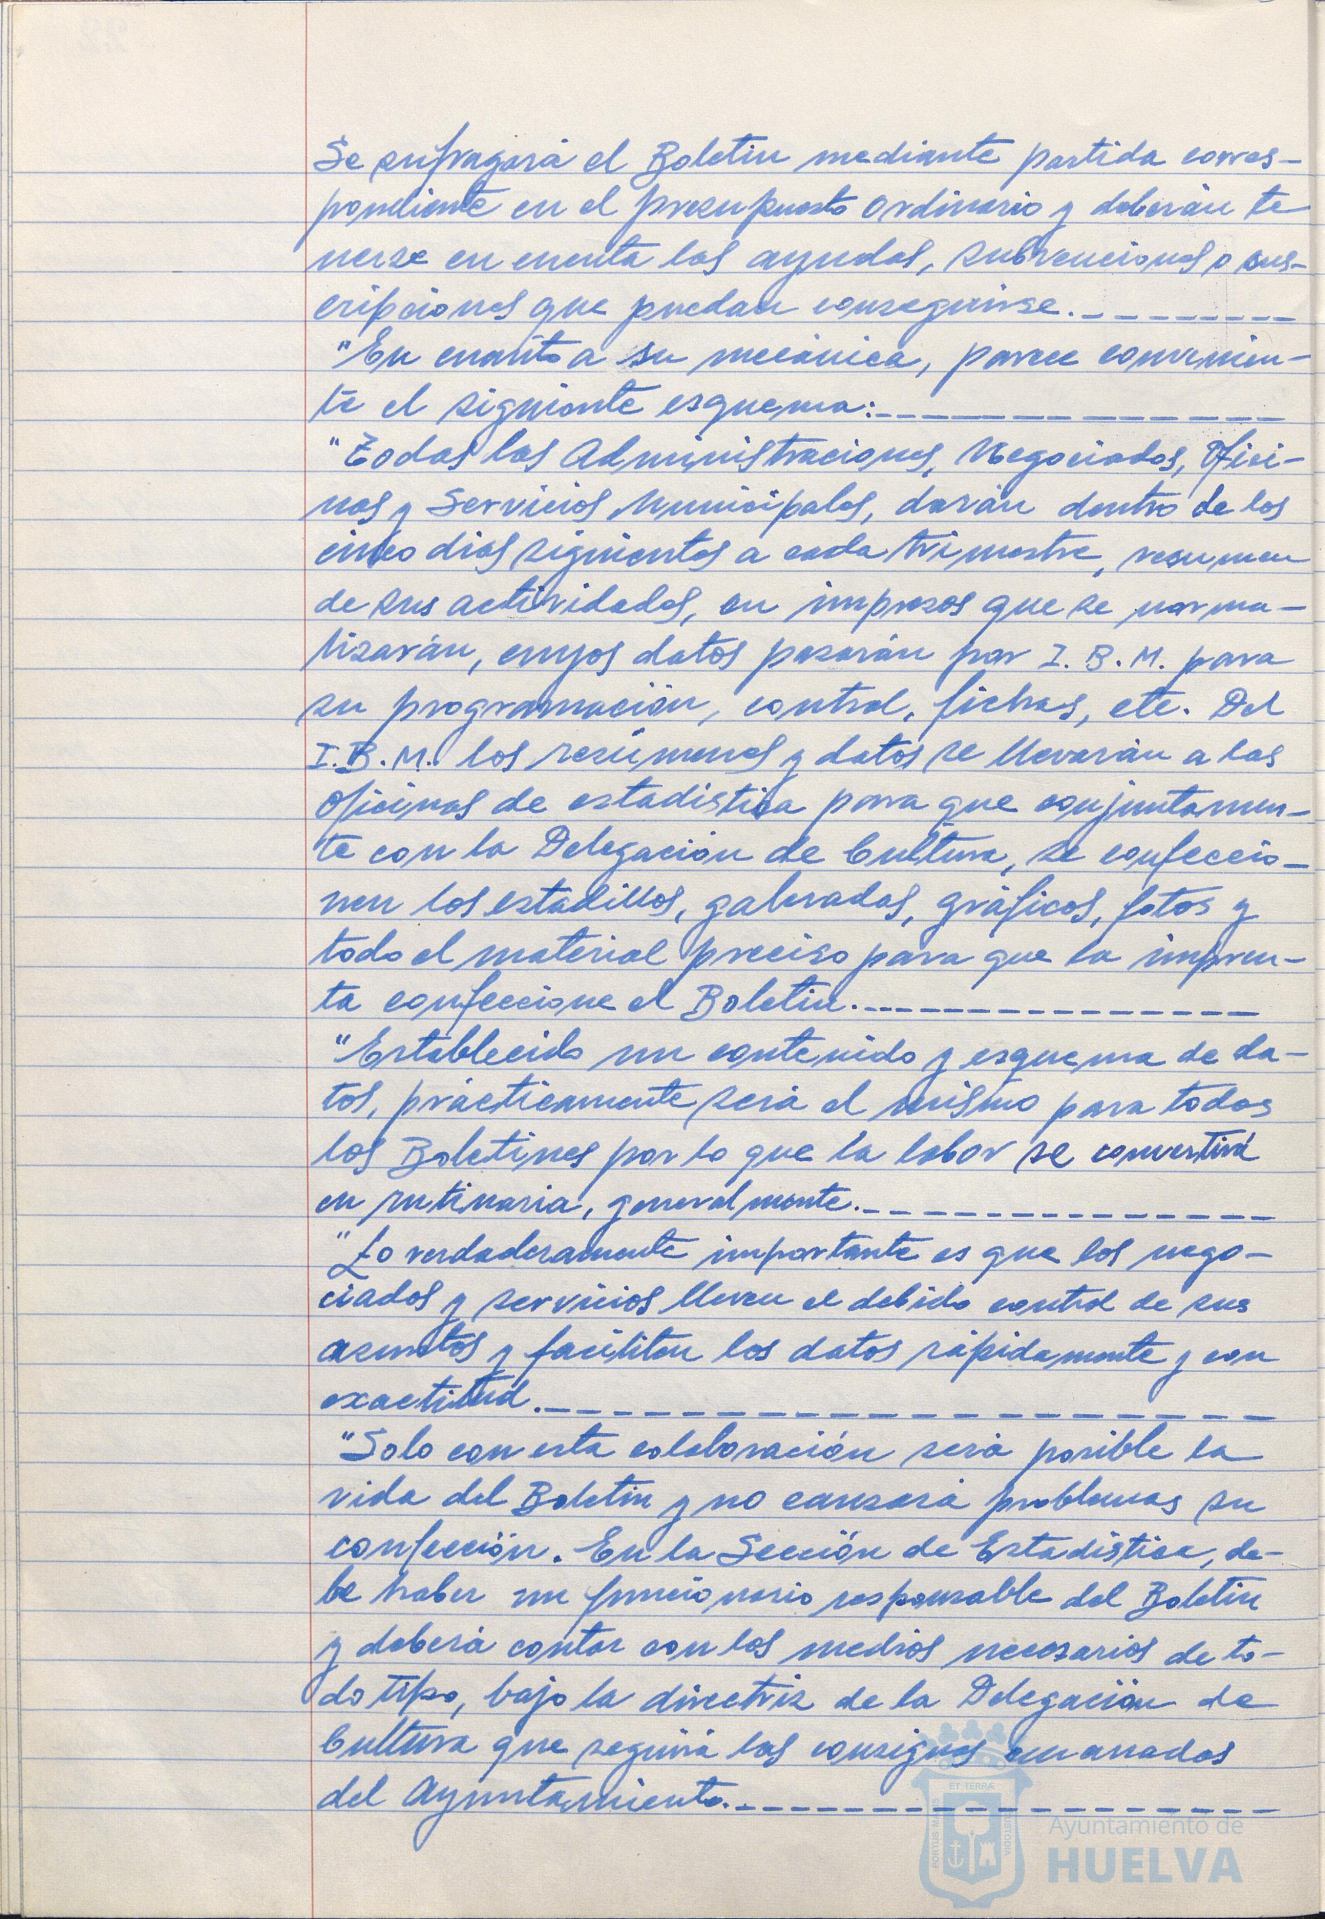 Se sufragará el Boletin mediante partida corres-
pondiente en el presupuesto ordinario y deberán te
nerse en cuenta las ayudas, subvenciones o sus-
cripciones que puedan conseguirse.
"En cuanto a su mecánica, parece convenien-
te el siguiente esquema:
"Todas las Administraciones, Negociados, Ofici-
nas y Servicios Municipales, darán dentro de los
cinco dias siguientes a cada trimestre, resumen
de sus actividades, en impresos que se norma-
lizarán, cuyos datos pasarán por I.B.M. para
su programación, control, fichas, etc. Del
I.B.M. los resúmenes y datos se llevarán a las
oficinas de estadistica para que conjuntamen-
te con la Delegación de Cultura, se confeccio-
nen los estadillos, galeradas, gráficos, fotos y
todo el material preciso para que la impren-
ta confeccione el Boletin.
"Establecido un contenido y esquema de da-
tos, prácticamente será el mismo para todos
los Boletines por lo que la labor se convertirá
en rutinaria, generalmente.
"Lo verdaderamente importante es que los nego-
ciados y servicios lleven el debido control de sus
asuntos y faciliten los datos rápidamente y con
exactitud.
"Solo con esta colaboración será posible la
vida del Boletin y no causará problemas su
confección. En la Sección de Estadistica, de-
be haber un funcionario responsable del Boletin
y deberá contar con los medios necesarios de to-
do tipo, bajo la directriz de la Delegación de
Cultura que seguirá las consignas emanadas
del Ayuntamiento.
ET TERRÆ
PORTUS MARIS
CUSTODIA
Ayuntamiento de
HUELVA